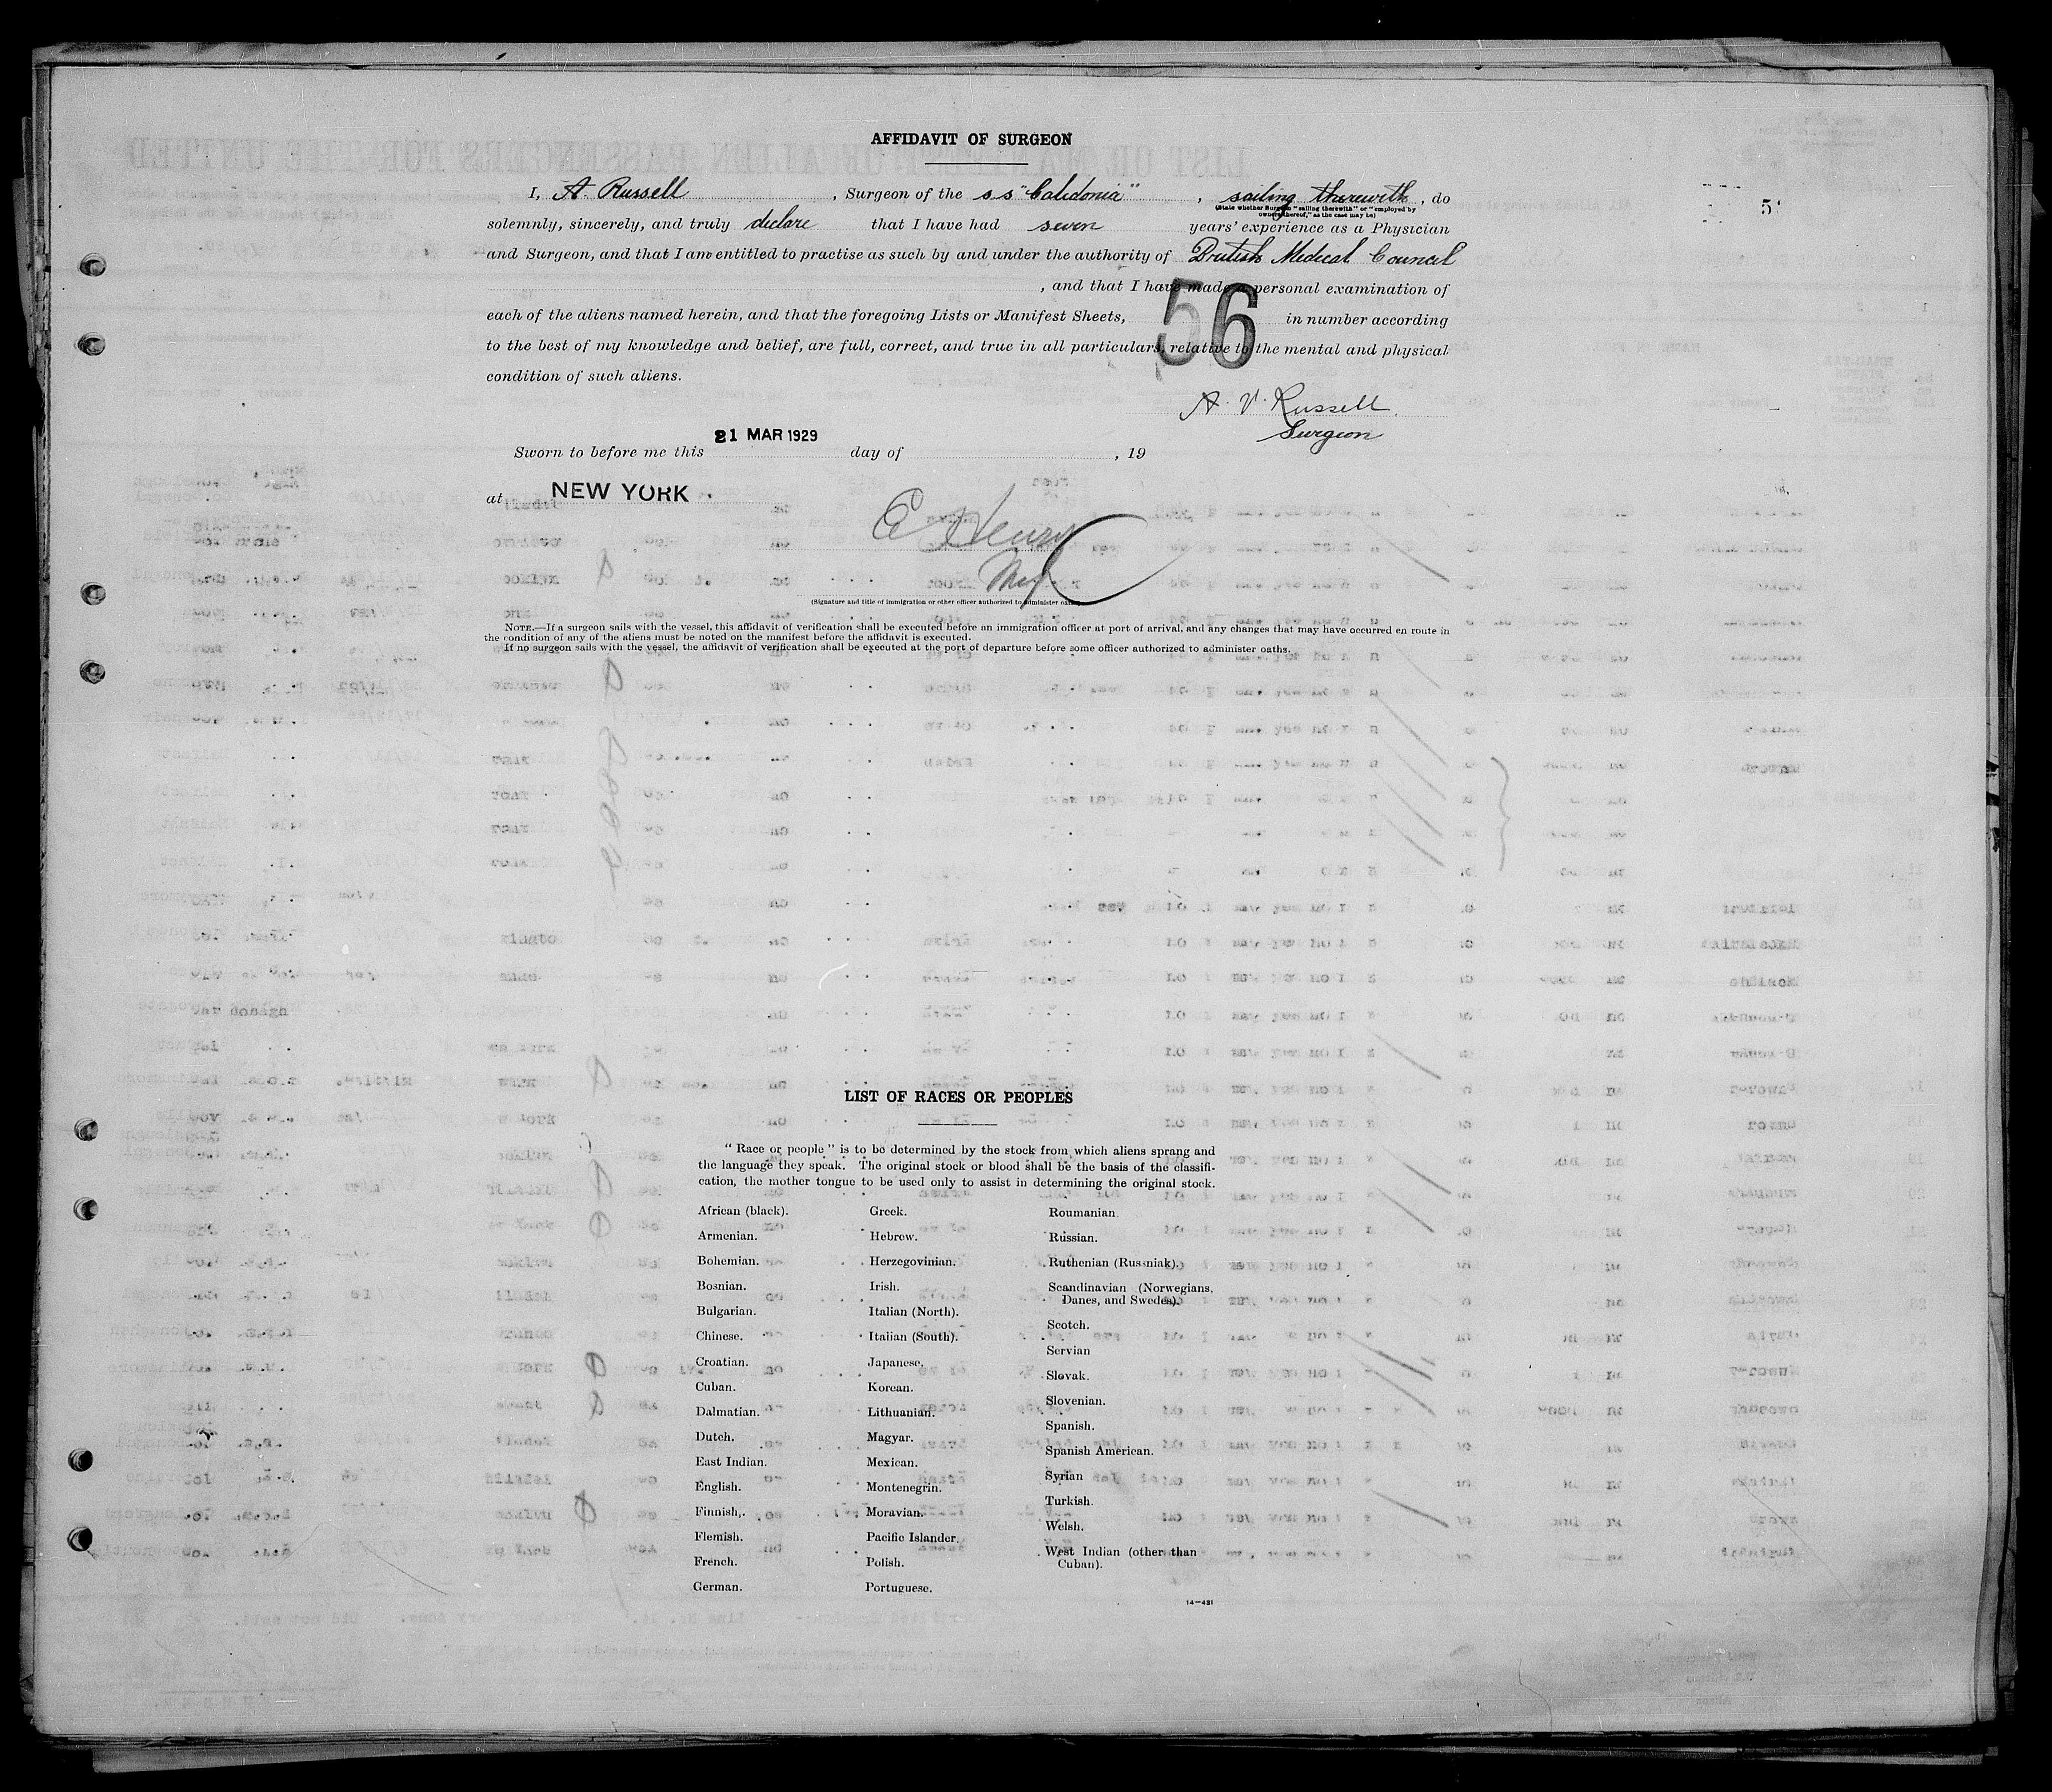 AFFIDAVIT OF SURGEON
I, A. Russell, Surgeon of the s.s "Caledonia", sailing therewith, do
(State whether Surgeon "sailing therewith" or "employed by
owners thereof," as the case may be)
solemnly, sincerely, and truly declare that I have had seven years' experience as a Physician
and Surgeon, and that I am entitled to practise as such by and under the authority of British Medical Council
, and that I have made a personal examination of
each of the aliens named herein, and that the foregoing Lists or Manifest Sheets, 56 in number according
to the best of my knowledge and belief, are full, correct, and true in all particulars, relative to the mental and physical
condition of such aliens.
A. V. Russell.
Surgeon
21 MAR 1929
Sworn to before me this day of , 19
at NEW YORK.
E Henry
(Signature and title of immigration or other officer authorized to administer oaths)
NOTE.—If a surgeon sails with the vessel, this affidavit of verification shall be executed before an immigration officer at port of arrival, and any changes that may have occurred en route in
the condition of any of the aliens must be noted on the manifest before the affidavit is executed.
If no surgeon sails with the vessel, the affidavit of verification shall be executed at the port of departure before some officer authorized to administer oaths.
LIST OF RACES OR PEOPLES
"Race or people" is to be determined by the stock from which aliens sprang and
the language they speak. The original stock or blood shall be the basis of the classifi-
cation, the mother tongue to be used only to assist in determining the original stock.
African (black).
Armenian.
Bohemian.
Bosnian.
Bulgarian.
Chinese.
Croatian.
Cuban.
Dalmatian.
Dutch.
East Indian.
English.
Finnish.
Flemish.
French.
German.
Greek.
Hebrew.
Herzegovinian.
Irish.
Italian (North).
Italian (South).
Japanese.
Korean.
Lithuanian.
Magyar.
Mexican.
Montenegrin.
Moravian.
Pacific Islander.
Polish.
Portuguese.
Roumanian.
Russian.
Ruthenian (Russniak).
Scandinavian (Norwegians,
Danes, and Swedes).
Scotch.
Servian
Slovak.
Slovenian.
Spanish.
Spanish American.
Syrian
Turkish.
Welsh.
West Indian (other than
Cuban).
14—431